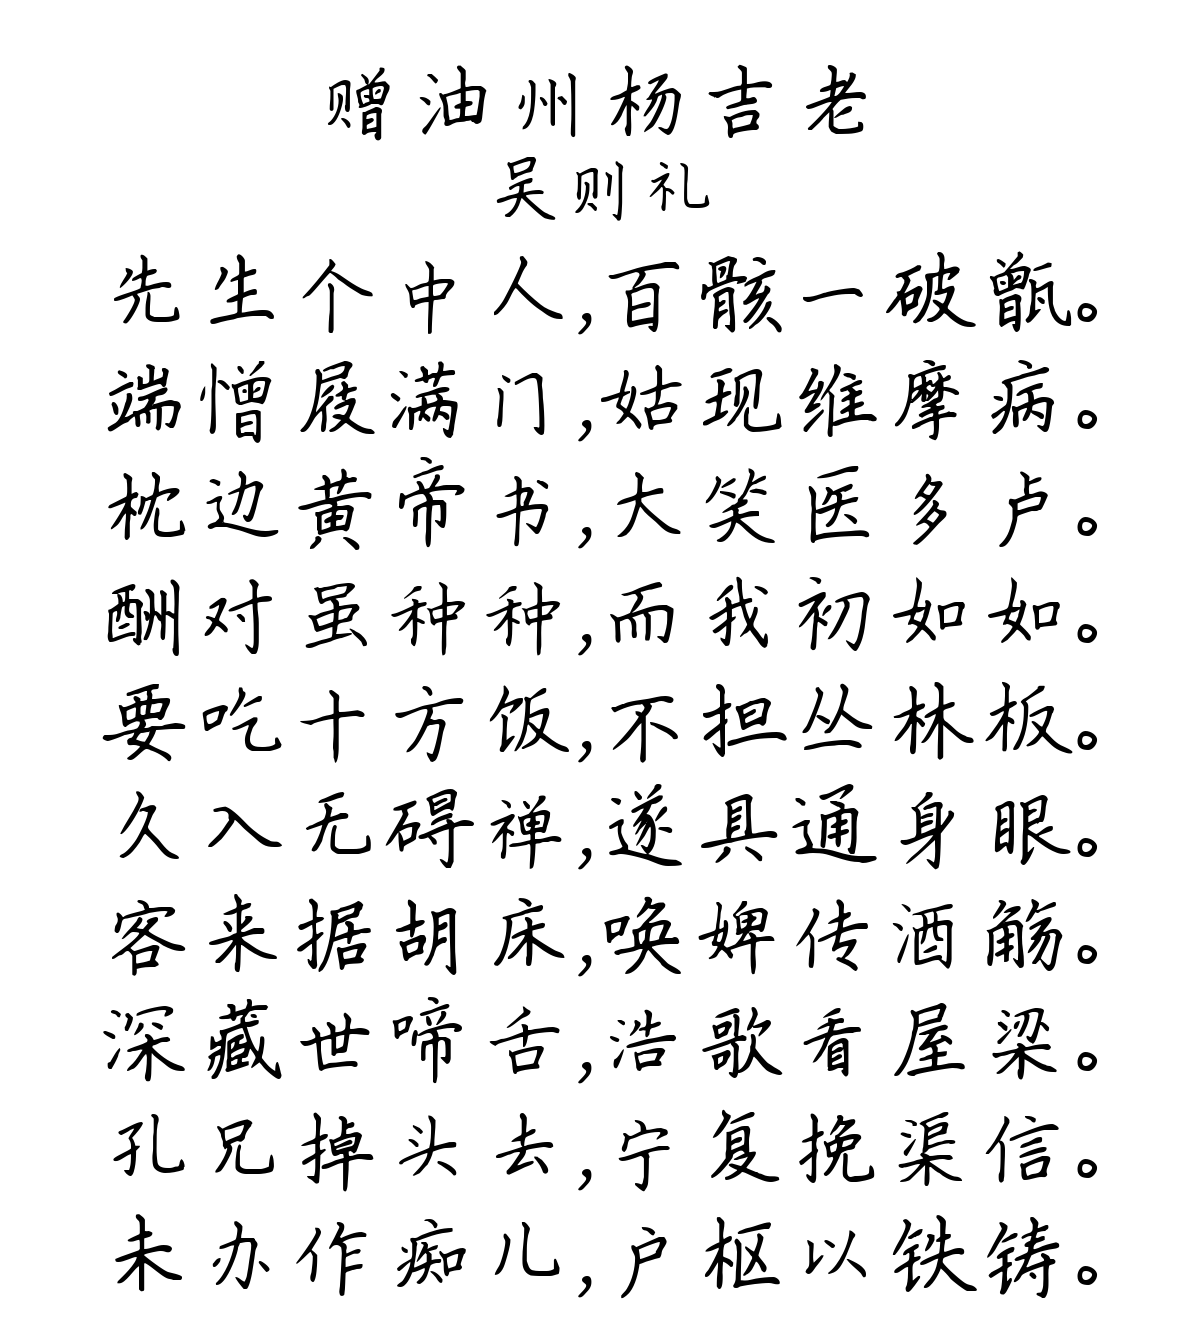 赠油州杨吉老
吴则礼
先生个中人,百骸一破甑。
端憎屐满门,姑现维摩病。
枕边黄帝书,大笑医多卢。
酬对虽种种,而我初如如。
要吃十方饭,不担丛林板。
久入无碍禅,遂具通身眼。
客来据胡床,唤婢传酒觞。
深藏世啼舌,浩歌看屋梁。
孔兄掉头去,宁复挽渠信。
未办作痴儿,户枢以铁铸。